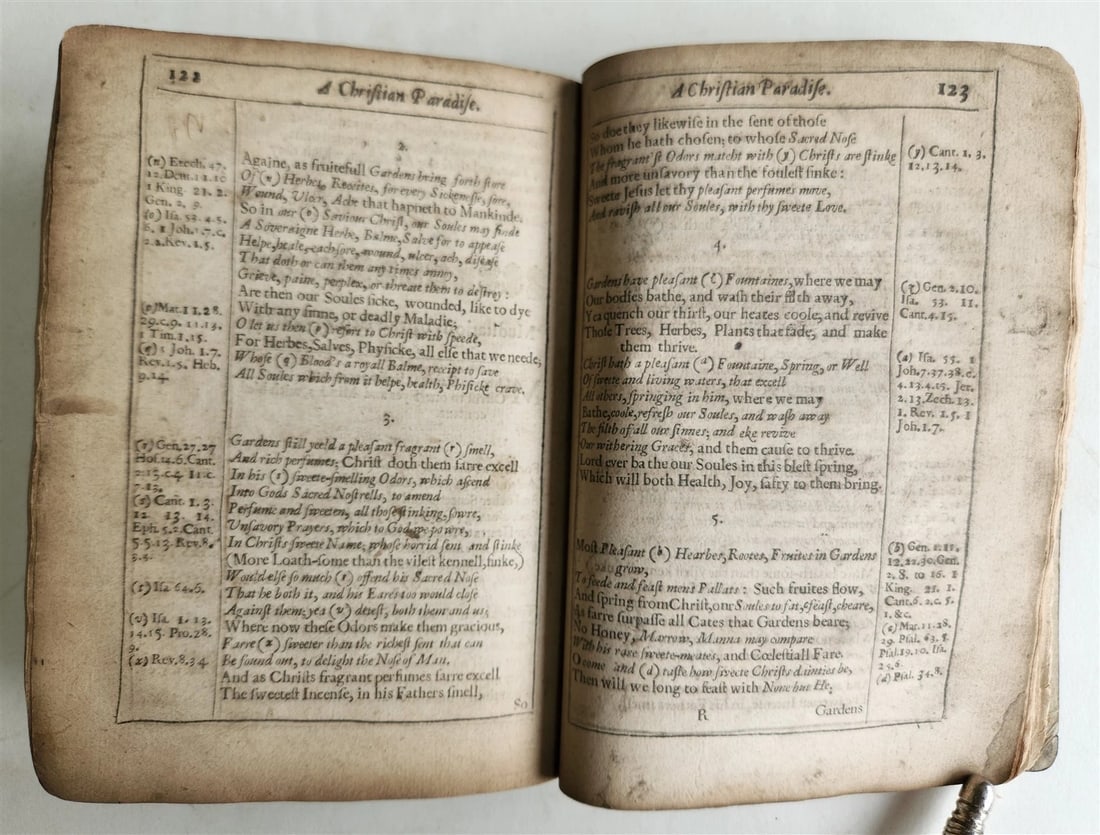 122
A Chriſtian Paradiſe.
2.
(n) Ezech. 47.
12. Deut. 11. 10
1 King. 21. 2.
Gen. 2. 9.
(o) Iſa. 53. 4.5.
6. 1 Joh. 1.7. c.
2. 2. Rev. 1. 5.
(p) Mat. 11. 28.
29. c. 9. 11. 13.
1 Tim. 1. 15.
(q) 1 Joh. 1. 7.
Rev. 1. 5. Heb.
9. 14.
Againe, as fruitefull Gardens bring forth ſtore
Of (n) Herbes, Rootes, for every Sickneſſe, ſore,
Wound, Ulcer, Ache that hapneth to Mankinde.
So in our (o) Saviour Chriſt, our Soules may finde
A Soveraigne Herbe, Balme, Salve for to appeaſe
Helpe, heale, each ſore, wound, ulcer, ach, diſeaſe
That doth or can them any times annoy,
Grieve, paine, perplex, or threate them to deſtroy:
Are then our Soules ſicke, wounded, like to dye
With any ſinne, or deadly Maladie;
O let us then (p) reſort to Chriſt with ſpeede,
For Herbes, Salves, Phyſicke, all elſe that we neede,
Whoſe (q) Blood's a royall Balme, receipt to ſave
All Soules which from it helpe, health, Phiſicke crave.
3.
(r) Gen. 27. 27
Hoſ. 14. 6. Cant.
2. 13. c. 4. 11. c.
7. 13.
(s) Cant. 1. 3.
12. 13. 14.
Eph. 5. 2. Cant.
5. 5. 13. Rev. 8.
3. 4.
(t) Iſa 64. 6.
(v) Iſa. 1. 13.
14. 15. Pro. 28.
9.
(x) Rev. 8. 3 4
Gardens ſtill yeeld a pleaſant fragrant (r) ſmell,
And rich perfumes; Chriſt doth them farre excell
In his (s) ſweete-ſmelling Odors, which aſcend
Into Gods Sacred Noſtrells, to amend
Perfume and ſweeten, all thoſe ſtinking, ſowre,
Unſavory Prayers, which to God we powre,
In Chriſts ſweete Name, whoſe horrid ſent and ſtinke
(More Loath-ſome than the vileſt kennell, ſinke,)
Would elſe ſo much (t) offend his Sacred Noſe
That he both it, and his Eares too would cloſe
Againſt them; yea (v) deteſt, both them and us;
Where now theſe Odors make them gracious,
Farre (x) ſweeter than the richeſt ſent that can
Be found out, to delight the Noſe of Man.
And as Chriſts fragrant perfumes farre excell
The ſweeteſt Incenſe, in his Fathers ſmell,
So
A Chriſtian Paradiſe.
123
So doe they likewiſe in the ſent of thoſe
Whom he hath choſen; to whoſe Sacred Noſe
The fragrant'ſt Odors matcht with (y) Chriſts are ſtinke
And more unſavory than the fouleſt ſinke:
Sweete Jeſus let thy pleaſant perfumes move,
And raviſh all our Soules, with thy ſweete Love.
(y) Cant. 1. 3.
12. 13. 14.
4.
Gardens have pleaſant (z) Fountaines, where we may
Our bodſes bathe, and waſh their filth away,
Yea quench our thirſt, our heates coole, and revive
Thoſe Trees, Herbes, Plants that fade, and make
them thrive.
Chriſt hath a pleaſant (a) Fountaine, Spring, or Well
Of ſweete and living waters, that excell
All others, ſpringing in him, where we may
Bathe, coole, refreſh our Soules, and waſh away
The filth of all our ſinnes; and eke revive
Our withering Graces, and them cauſe to thrive.
Lord ever bathe our Soules in this bleſt ſpring,
Which will both Health, Joy, ſafty to them bring.
(z) Gen. 2. 10.
Iſa. 53. 11.
Cant. 4. 15.
(a) Iſa. 55. 1
Joh. 7. 37. 38. c.
4. 13. 4. 15. Jer.
2. 13. Zech. 13.
1. Rev. 1. 5. 1
Joh. 1. 7.
5.
Moſt Pleaſant (b) Hearbes, Rootes, Fruites in Gardens
grow,
To feede and feaſt mens Pallats: Such fruites flow,
And ſpring from Chriſt, our Soules to fat, feaſt, cheare,
As farre ſurpaſſe all Cates that Gardens beare;
No Honey, Marrow, Manna may compare
With his rare ſweete-meates, and Cœleſtiall Fare.
O come and (d) taſte how ſweete Chriſts dainties be,
Then will we long to feaſt with None but He;
(b) Gen. 1. 11.
12. 21. 30. Gen.
2. 8. to 16. 1
King. 21. 1.
Cant. 6. 2. c. 5.
1. &c.
(c) Mat. 11. 28.
29. Pſal. 63. 5.
Pſal. 19. 10. Iſa.
25. 6.
(d) Pſal. 34. 8.
R
Gardens